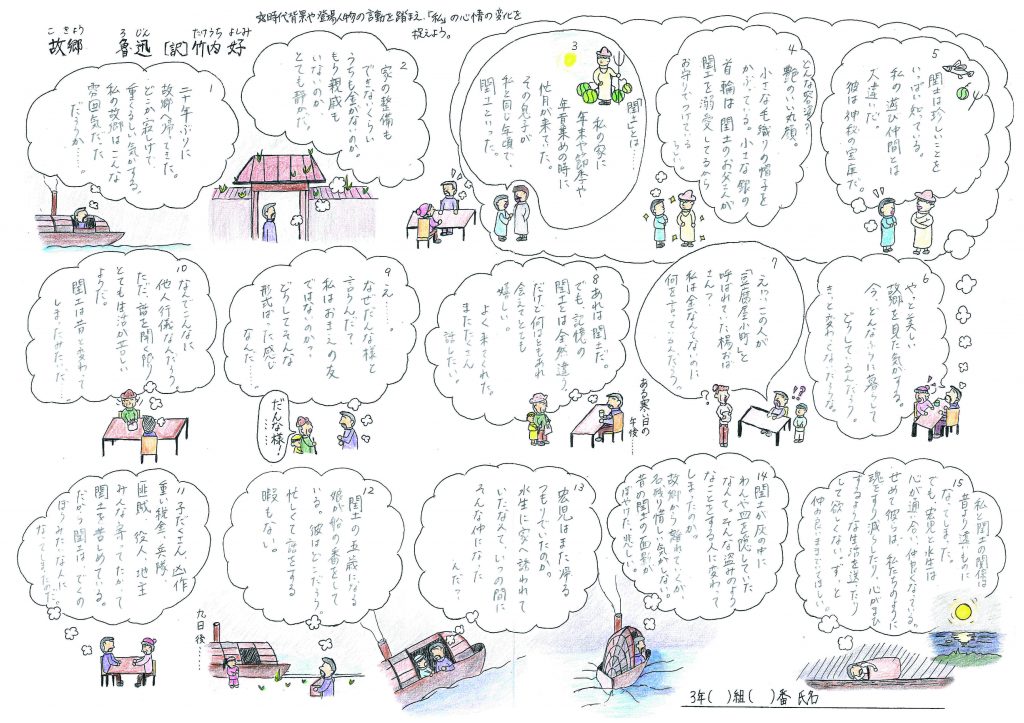 ☆時代背景や登場人物の言動を踏まえ、「私」の心情の変化を
捉えよう。
こきょう　ろじん　たけうち　よしみ
故郷　魯迅　[訳]竹内　好
1
二十年ぶりに
故郷へ帰ってきた。
どこか寂しげで、
重苦しい気がする。
私の故郷はこんな
雰囲気だった
だろうか……。
2
家の整備も
できないくらい
うちも金がないのか。
もう親戚も
いないのか
とても静かだ。
3
閏土とは……
私の家に
年末や節季や
年貢集めの時に
他月が来ていた。
その息子が
私と同じ年頃で、
閏土といった。
4
どんな容姿？
艶のいい丸顔。
小さな毛織りの帽子を
かぶってる。小さな銀の
首輪は閏土のお父さんが
閏土を溺愛してるから
お守りでつけている
らしい。
5
閏土は珍しいことを
いっぱい知ってる。
私の遊び仲間とは
大違いだ。
彼は神秘の宝庫だ。
6
やっと美しい
故郷を見た気がする。
今、どんなふうに暮らして
どうしているんだろう。
きっと変わってないだろうな。
7
えっ!?この人が
「豆腐屋小町」と
呼ばれていた楊おば
さん？
私は金なんてないのに
何を言ってるんだろう。
ある寒い日の
午後……
8
あれは閏土だ。
でも、記憶の
閏土とは全然違う。
だけど何はともあれ
会えてとても
嬉しい。
よく来てくれた。
またたくさん
話したい。
9
え……。
なぜだんな様と
言うんだ？
私はおまえの友
ではないのか？
どうしてそんな
形式ばった感じ
なんだ……。
だんな様！
……
10
なんでこんなに
他人行儀なんだろう。
ただ、話を聞く限り
とても生活が苦しい
ようだ。
閏土は昔と変わって
しまったみたいだ……
11
子だくさん、凶作
重い税金、兵隊
匪賊、役人、地主
みんな寄ってたかって
閏土を苦しめている。
だから閏土は、でくの
ぼうみたいな人に
なってしまったのだ。
九日後……
12
閏土の五歳になる
娘が船の番をして
いる。彼はどこだろう。
忙しくて話をする
暇もない。
13
宏児はまた帰る
つもりでいたのか。
水生に家へ誘われて
いたなんて、いつの間に
そんな仲になった
んだ？
14
閏土が灰の中に
わんや皿を隠していた
なんて。そんな盗みのよう
なことをする人に変わって
しまったのか。
故郷から離れていくが、
名残り惜しい気がしない。
昔の閏土の面影が
ぼやけた、悲しい。
15
私と閏土の関係は
昔より遠いものに
なってしまった。
でも、宏児と水生は
心が通い合い、仲良くなってる。
せめて彼らは、私たちのように
魂をすり減らしたり、心がまひ
するような生活を送ったり
して欲しくない。ずっと
仲の良いままでいてほしい。
3年(　)組(　)番 氏名